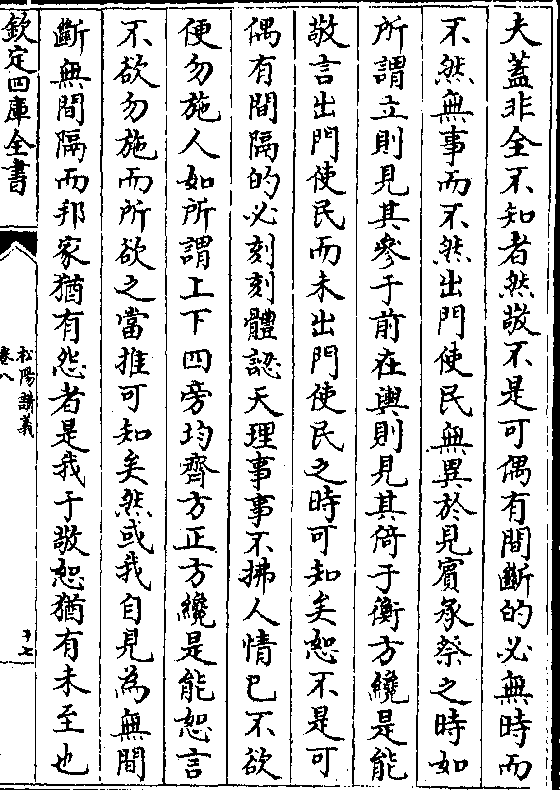 夫蓋非全不知者然敬不是可偶有間斷的必無時而
不然無事而不然出門使民無異於見賓承祭之時如
所謂立則見其參于前在輿則見其倚于衡方纔是能
敬言出門使民而未出門使民之時可知矣恕不是可
偶有間隔的必刻刻體認天理事事不拂人情已不欲
便勿施人如所謂上下四旁均齊方正方纔是能恕言
不欲勿施而所欲之當推可知矣然或我自見為無間
斷無間隔而邦家猶有怨者是我于敬恕猶有未至也
欽定四庫全書
松陽講義
卷八
十七